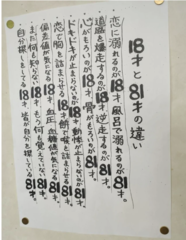 18才と81才の違い
恋に溺れるのが18才、風呂で溺れるのが81才
道路を爆走するのが18才、逆走するのが81才
心がもろいのが18才、骨がもろいのが81才
ドキドキが止まらないのが18才、動悸が止まらないのが81才
恋で胸を詰まらせる18才、餅で喉を詰まらせる81才
偏差値が気になる18才、血圧、血糖値が気になる81才
まだ何も知らない18才、もう何も覚えていない81才
自分探しをしている18才、皆が自分を探している81才